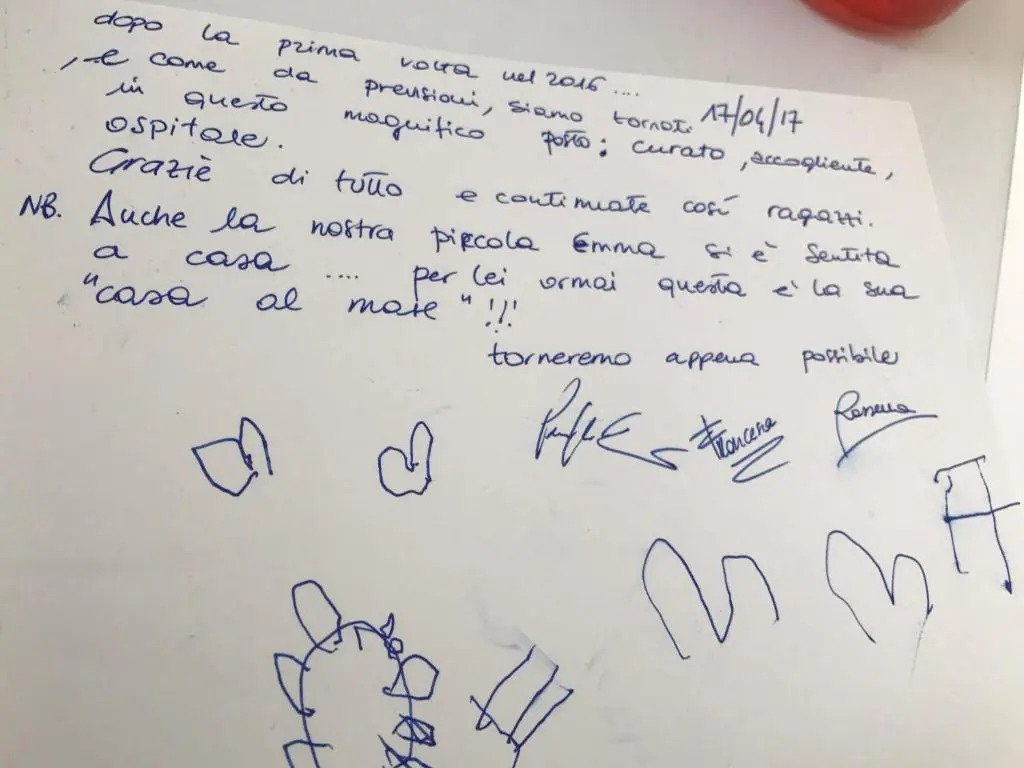 dopo la prima volta nel 2016....
, e come da prensioni, siamo tornati 17/04/17
in questo magnifico posto; curato, accogliente,
ospitale.
Graziè di tutto e continuate così ragazzi.
NB. Anche la nostra piccola Emma si è sentita
a casa .... per lei ormai questa è la sua
"casa al mare" !!!
torneremo appena possibile
Francesca
E
M
M
A